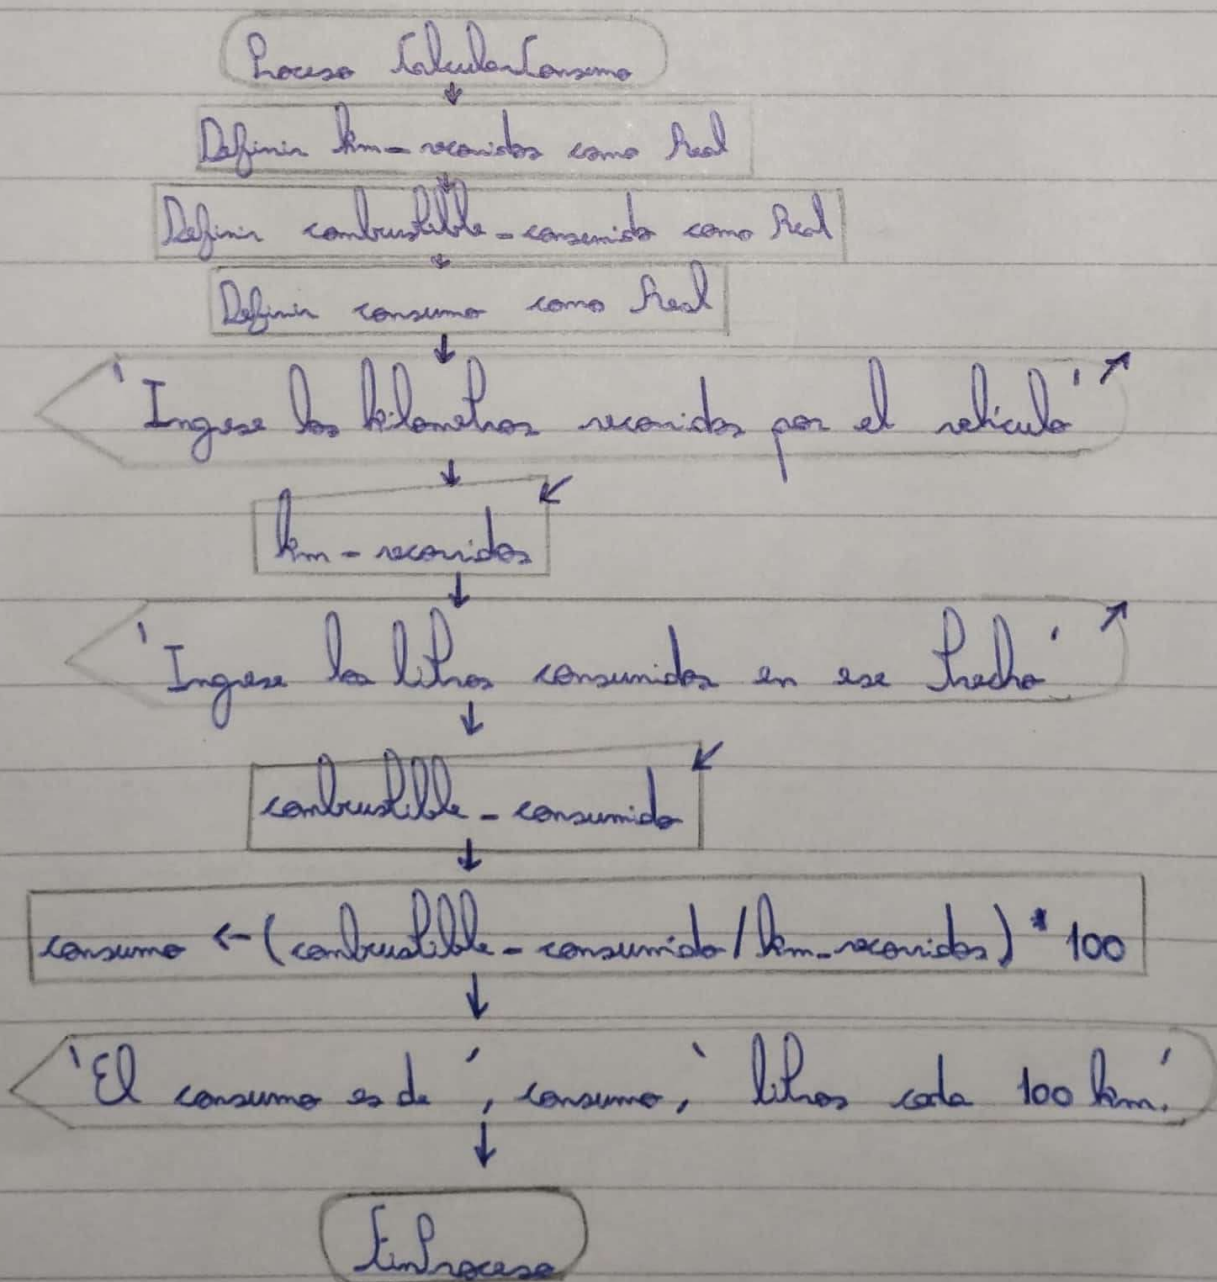 Proceso CalcularConsumo
Definir km_recorridos como Real
Definir combustible_consumido como Real
Definir consumo como Real
'Ingrese los kilometros recorridos por el vehiculo'
km_recorridos
'Ingrese los litros consumidos en ese trecho'
combustible_consumido
consumo <- (combustible_consumido/km_recorridos) * 100
'El consumo es de ', consumo, ' litros cada 100 km.'
FinProceso